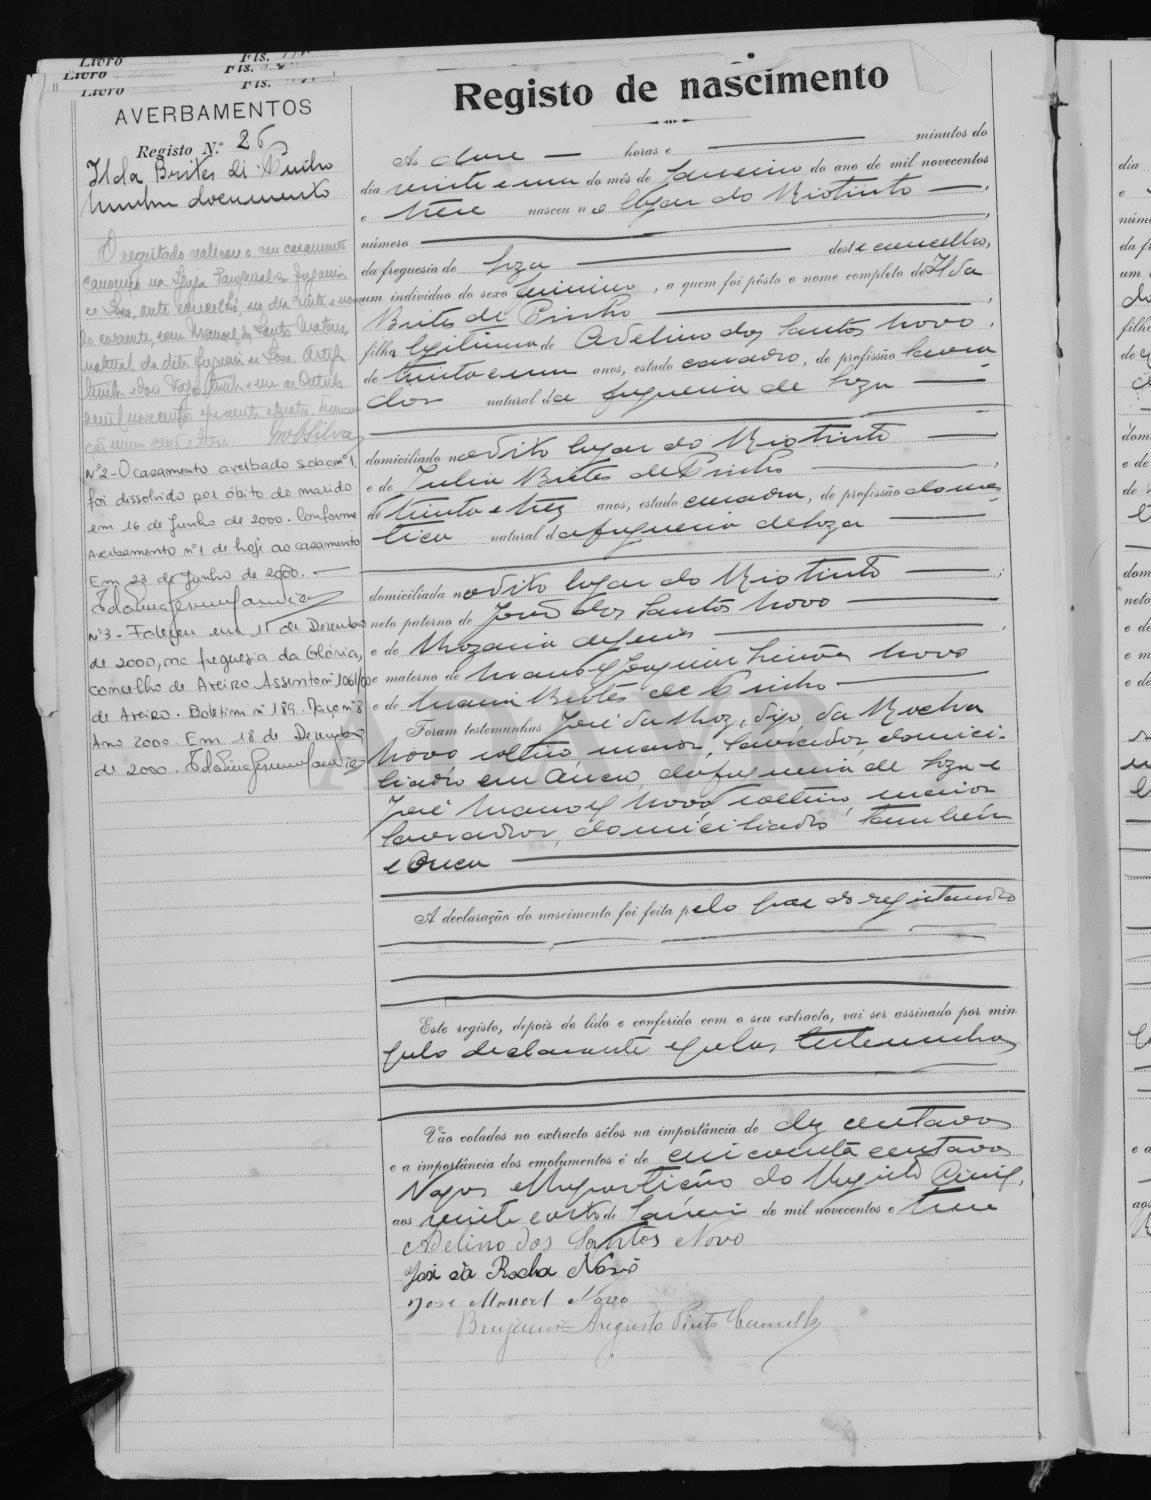 Livro Fls.
Livro Fls.
Livro Fls.
AVERBAMENTOS
Registo N.º 26
Ilda Brites de Pinho
Nenhum documento
O registado realisou o seu casamento
canonico na Igreja Paroquial da freguesia
de Sosa, deste concelho, no dia vinte e nove
do corrente, com Manuel dos Santos
natural da dita freguesia de Sosa.
trinta e um de Outubro
Silva
Nº2 - O casamento averbado sob o nº 1,
foi dissolvido por óbito do marido
em 16 de Junho de 2000. Conforme
Averbamento nº1 de hoje ao casamento
Em 23 de Junho de 2000.
Nº3 - Faleceu em 15 de Dezembro
de 2000, na freguesia da Glória,
concelho de Aveiro. Assento nº 1061/00
de Aveiro. Boletim nº 189. Maço nº 8
Ano 2000. Em 18 de Dezembro
de 2000.
Registo de nascimento
Ás doze horas e minutos do
dia vinte e um do mês de Janeiro do ano de mil novecentos
e treze nasceu no lugar do Riotinto
número
da freguesia de Soza deste concelho,
um individuo do sexo feminino, a quem foi pôsto o nome completo de Ilda
Brites de Pinho
filha legitima de Adelino dos Santos Novo,
de trinta e um anos, estado casado, de profissão lavra
dor natural da freguesia de Soza
domiciliado no dito lugar do Riotinto
e de Julia Brites de Pinho
de trinta e trez anos, estado casada, de profissão domes
tica natural da freguesia de Soza
domiciliada no dito lugar do Riotinto;
neto paterno de João dos Santos Novo
e de Rozaria de Jesus,
e materno de Manoel Joaquim Simões Novo
e de Maria Brites de Pinho
Foram testemunhas José da Roz, digo, da Rocha
Novo solteiro, maior, lavrador, domici-
liado em Ouca, da freguesia de Soza e
José Manoel Novo solteiro, maior
lavrador, domiciliado tambem
e Ouca
A declaração do nascimento foi feita pelo pae do registando
Este registo, depois de lido e conferido com o seu extracto, vai ser assinado por mim
pelo declarante e pelas testemunhas
Vão colados no extracto sêlos na importância de dez centavos
e a importância dos emolumentos é de cincoenta centavos
Vagos e Repartição do Registo Civil,
aos vinte e oito de Janeiro de mil novecentos e treze
Adelino dos Santos Novo
José da Rocha Novo
José Manoel Novo
Benjamin Augusto Pinto
ADAVR